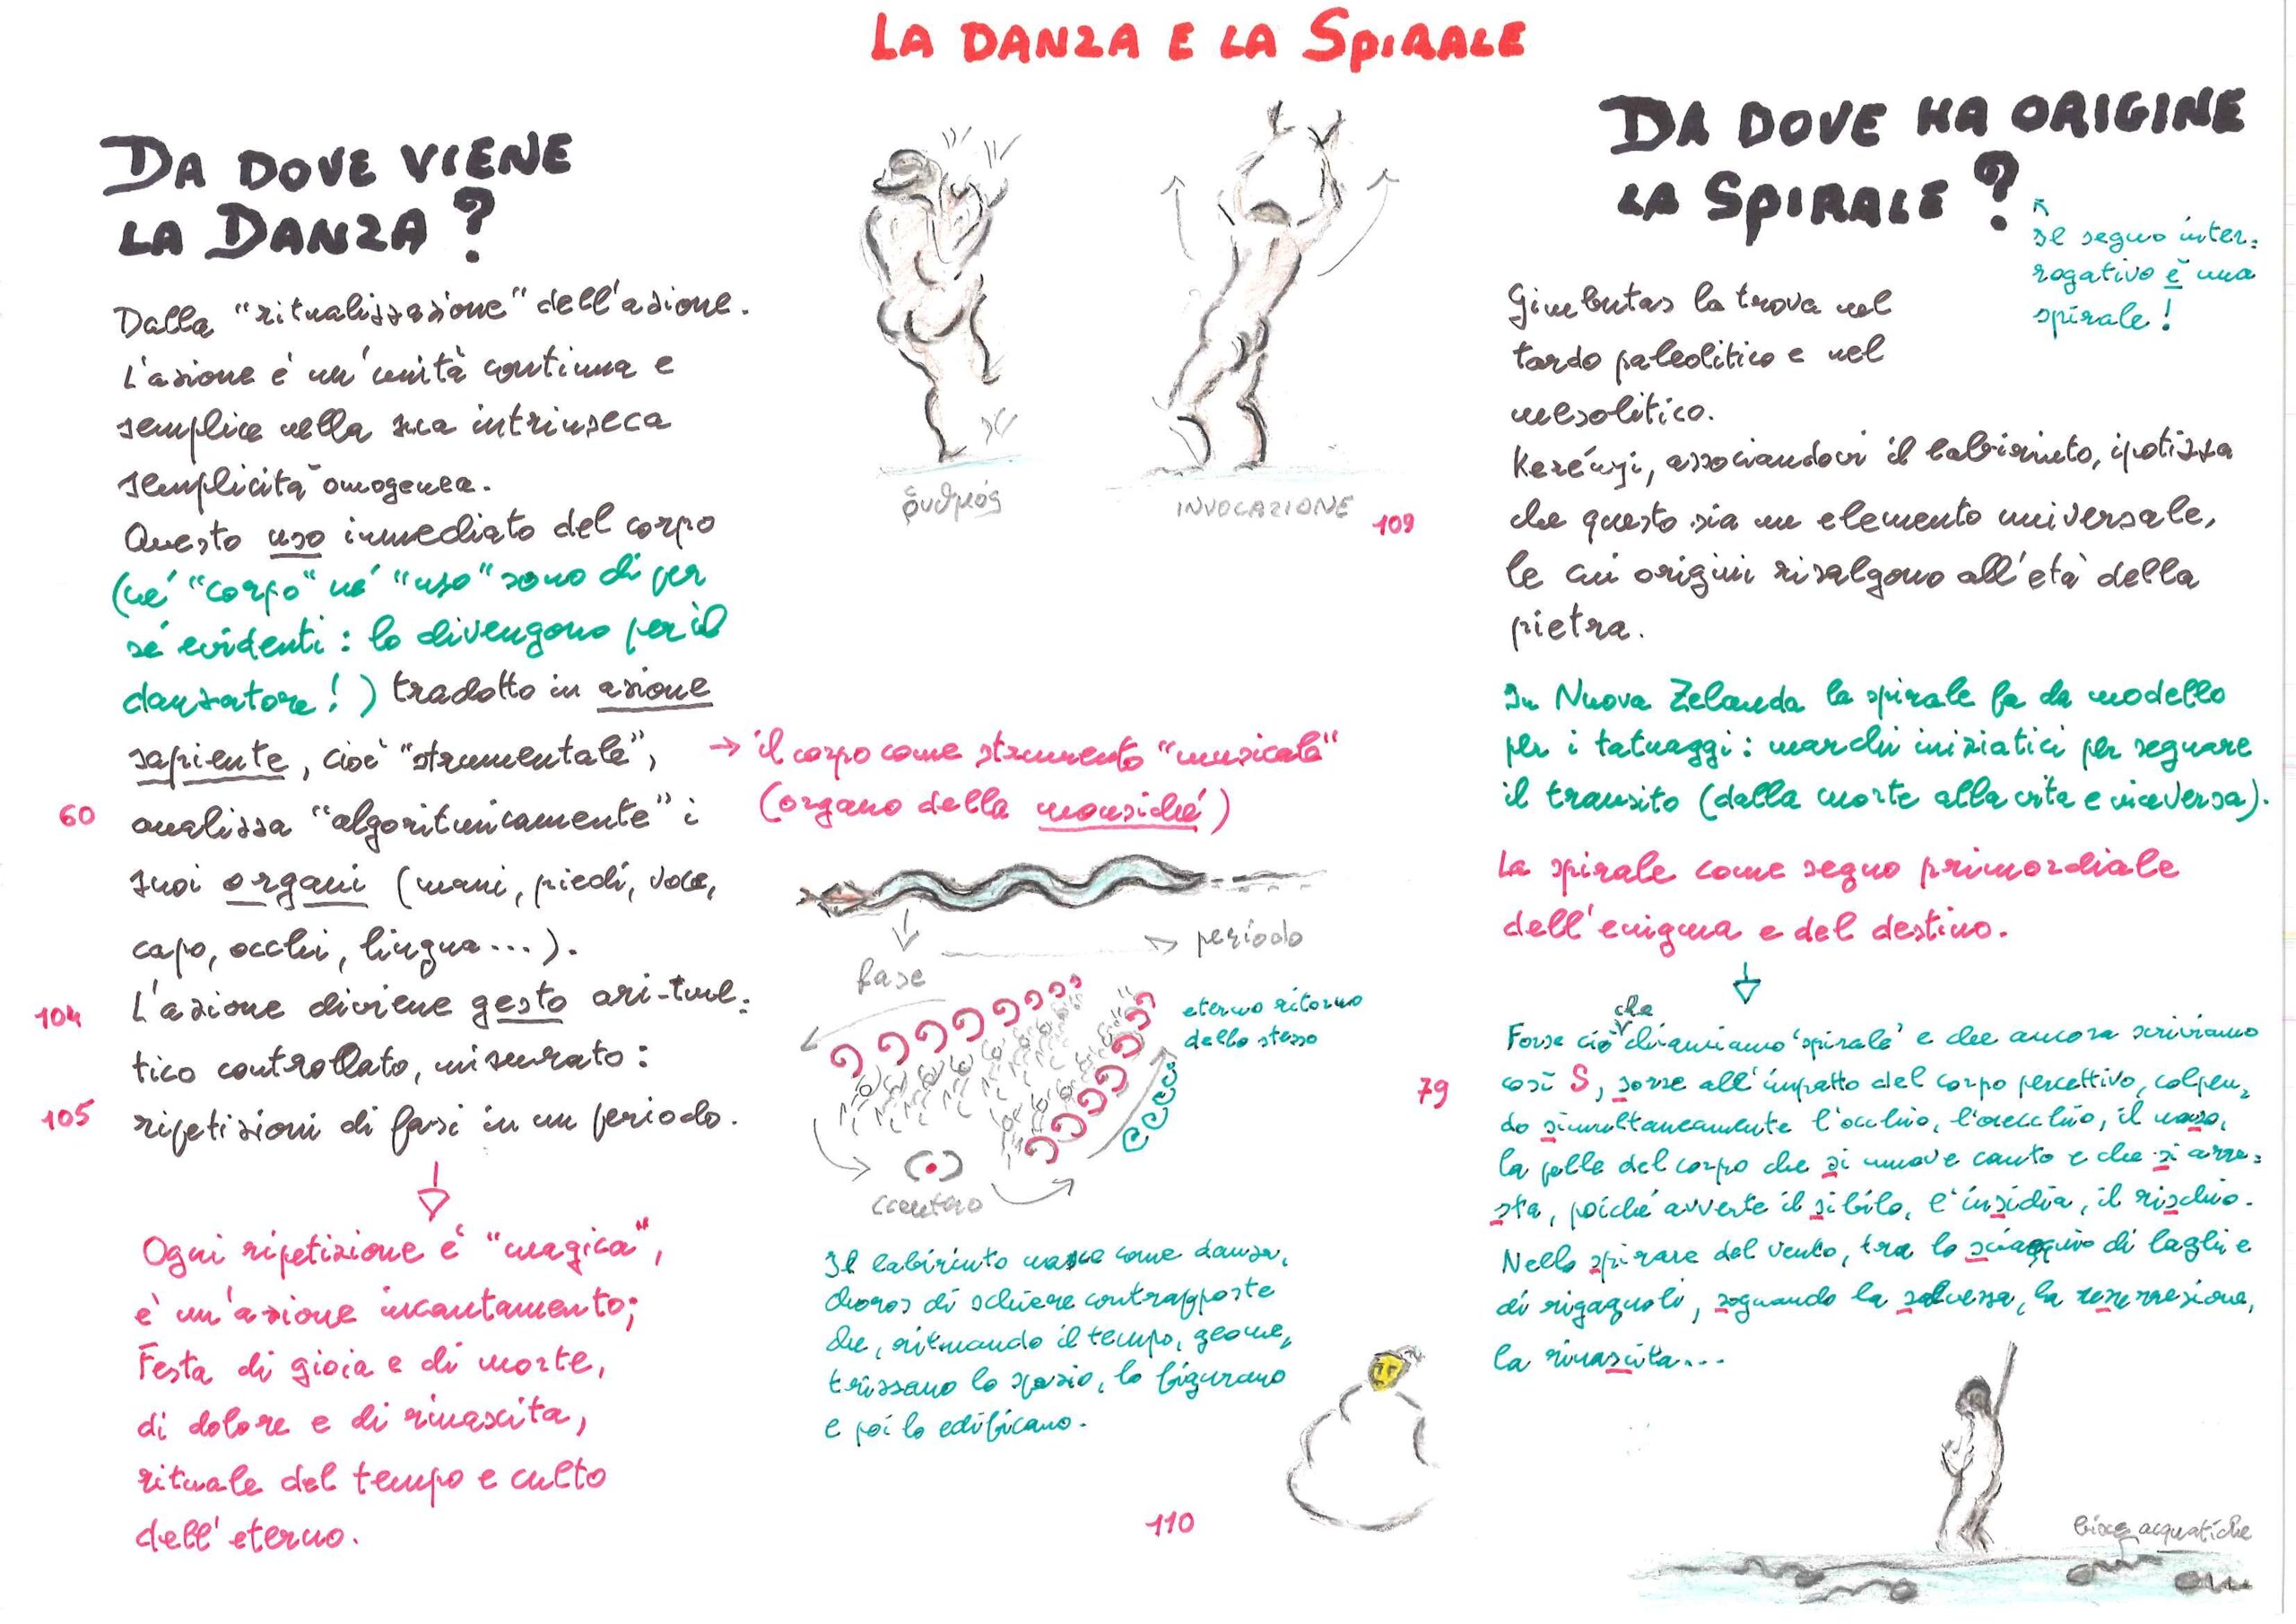 LA DANZA E LA SPIRALE
DA DOVE VIENE
LA DANZA?
Dalla "ritualizzazione" dell'azione.
L'azione è un'unità continua e
semplice nella sua intrinseca
semplicità omogenea.
Questo uso immediato del corpo
(né "corpo" né "uso" sono di per
sé evidenti: lo divengono per il
danzatore!) tradotto in azione
sapiente, cioè "strumentale",
60
analizza "algoritmicamente" i
suoi organi (mani, piedi, voce,
capo, occhi, lingua...).
104
L'azione diviene gesto ari-tme=
tico controllato, misurato:
105
ripetizioni di fasi in un periodo.
Ogni ripetizione è "magica",
è un'azione incantamento;
Festa di gioia e di morte,
di dolore e di rinascita,
rituale del tempo e culto
dell'eterno.
ῥυθμός
INVOCAZIONE
109
→ il corpo come strumento "musicale"
(organo della mousiché)
periodo
fase
eterno ritorno
dello stesso
centro
Il labirinto nasce come danza,
choros di schiere contrapposte
che, ritmando il tempo, geome=
trizzano lo spazio, lo figurano
e poi lo edificano.
110
DA DOVE HA ORIGINE
LA SPIRALE?
Il segno inter=
rogativo è una
spirale!
Gimbutas la trova nel
tardo paleolitico e nel
mesolitico.
Kerényi, associandovi il labirinto, ipotizza
che questo sia un elemento universale,
le cui origini risalgono all'età della
pietra.
In Nuova Zelanda la spirale fa da modello
per i tatuaggi: marchi iniziatici per segnare
il transito (dalla morte alla vita e viceversa).
La spirale come segno primordiale
dell'enigma e del destino.
Forse ciò che chiamiamo 'spirale' e che ancora scriviamo
79
così S, sorse all'impatto del corpo percettivo, colpen=
do simultaneamente l'occhio, l'orecchio, il naso,
la pelle del corpo che si muove cauto e che si arre=
sta, poiché avverte il sibilo, l'insidia, il rischio.
Nello spirare del vento, tra lo sciacquio di laghi e
di rigagnoli, sognando la salvezza, la resurrezione,
la rinascita...
bisce acquatiche